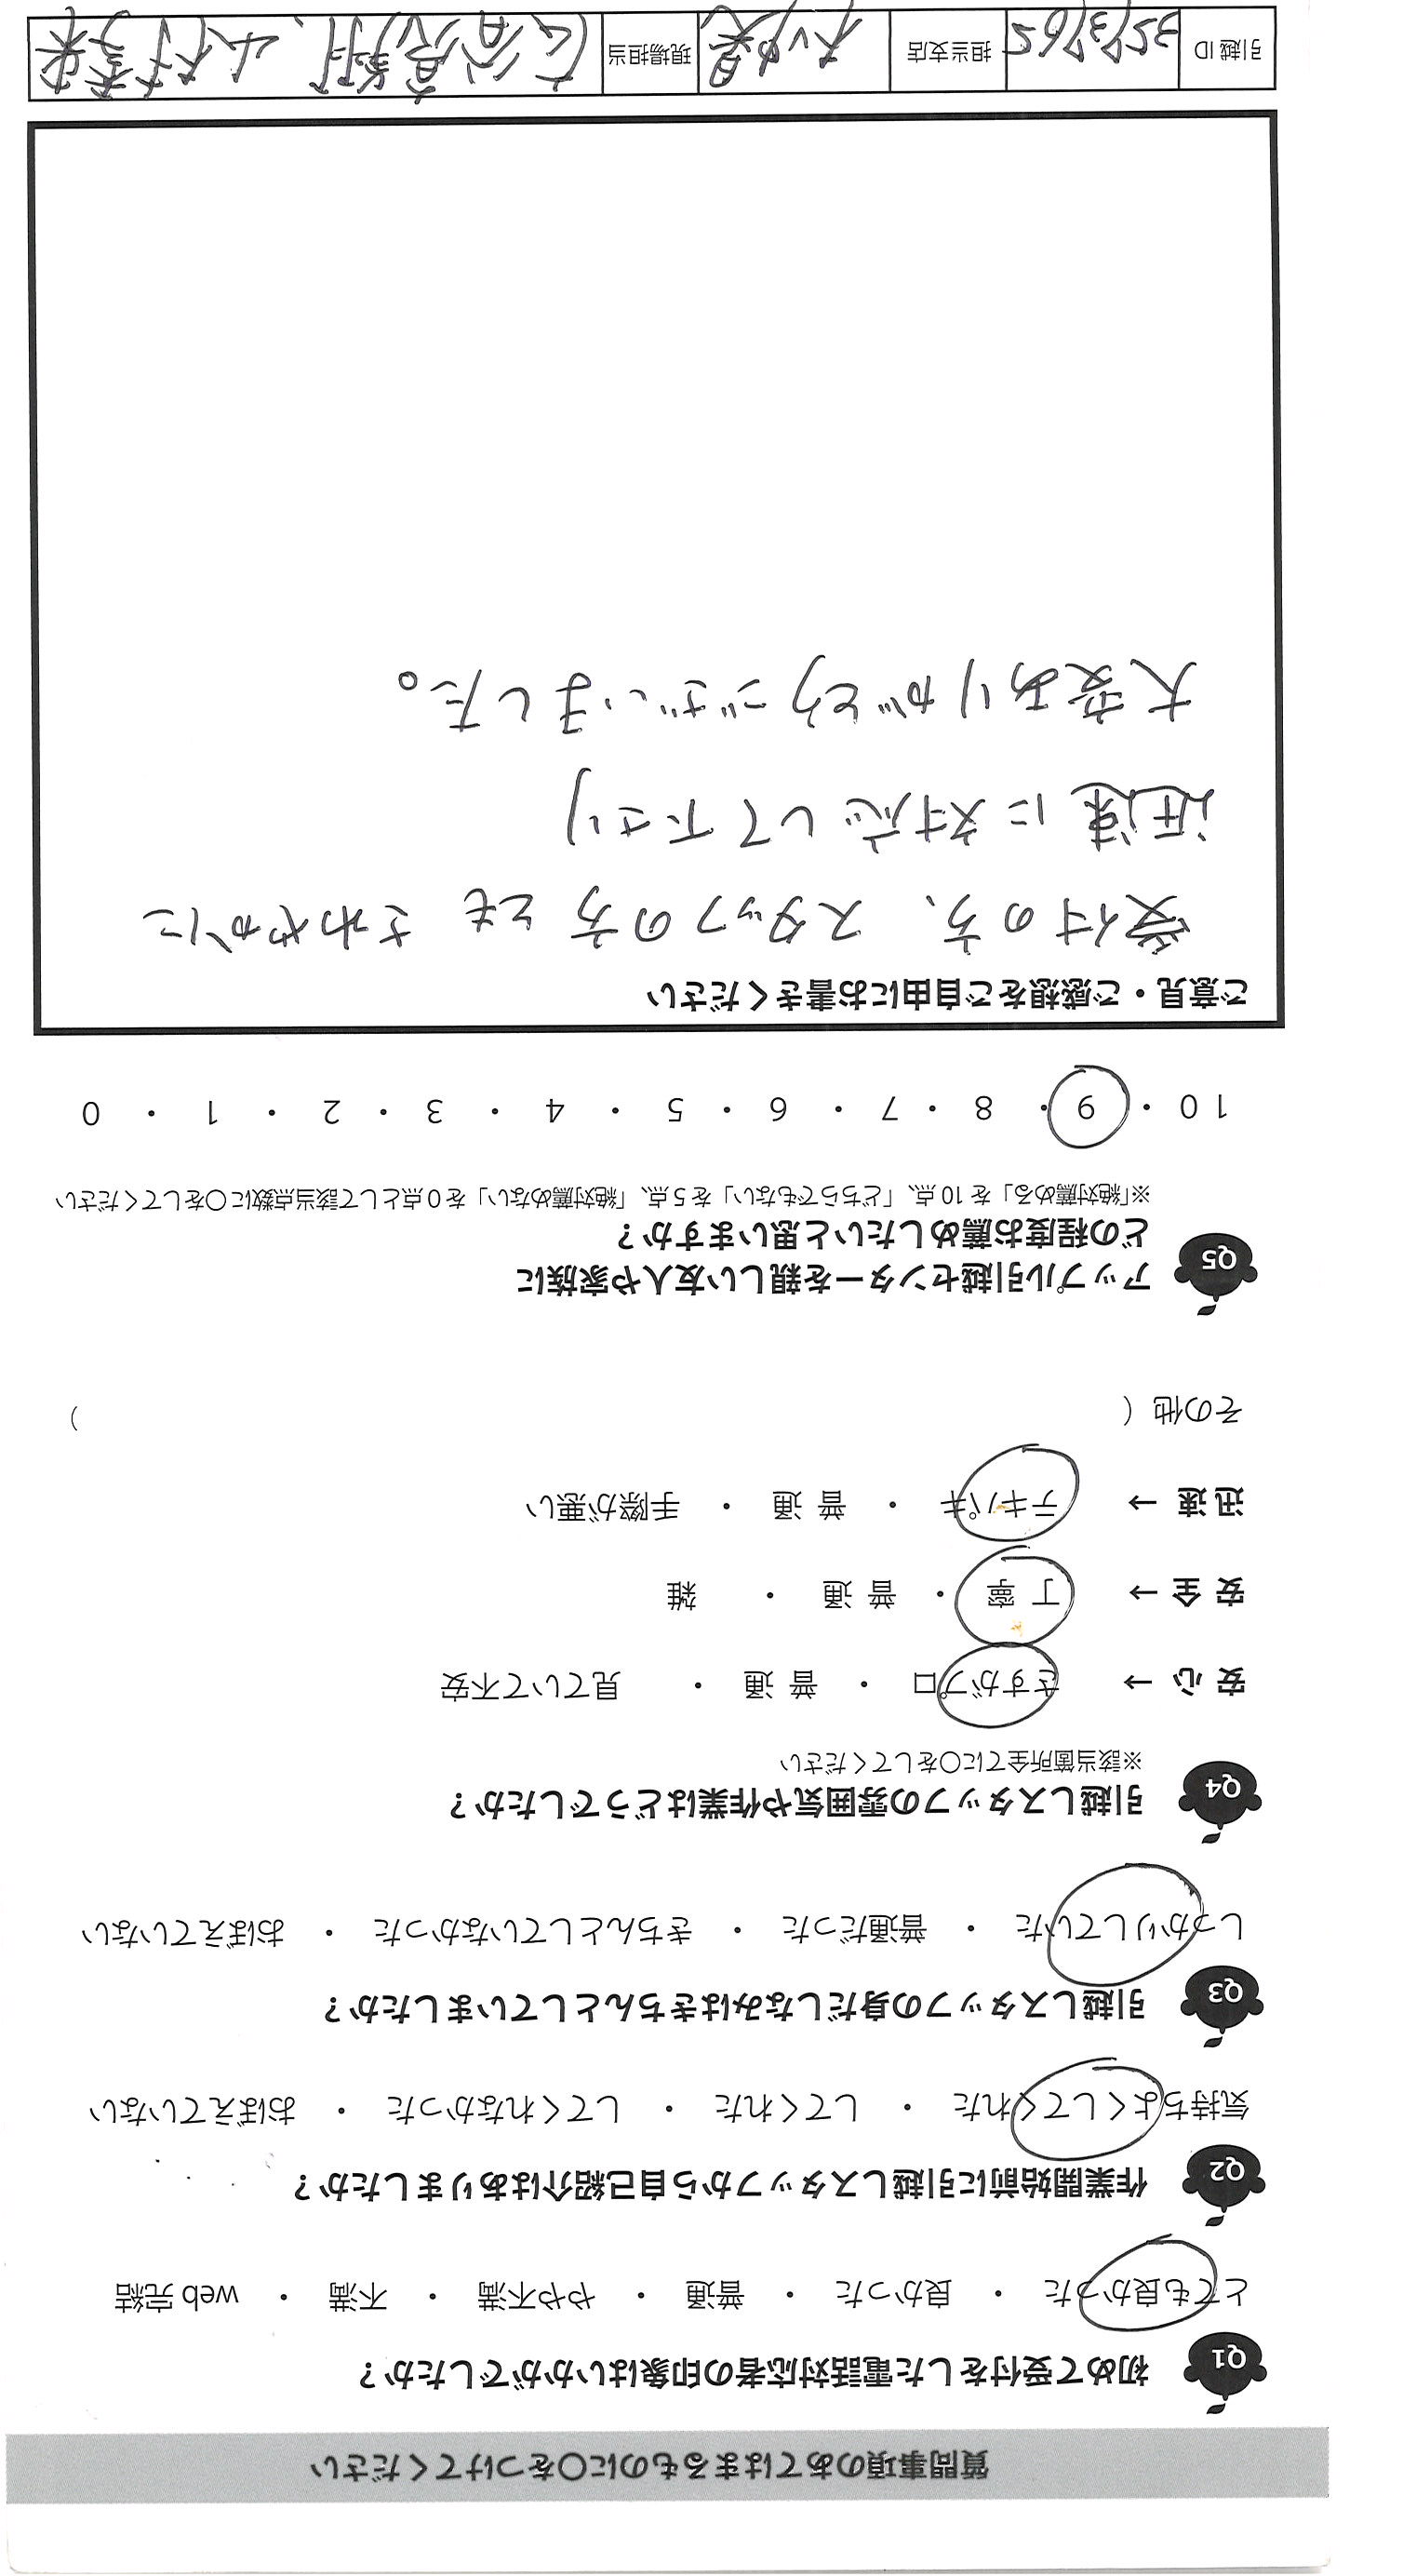 質問事項のあてはまるものに○をつけてください
Q1 初めて受付をした電話対応者の印象はいかがでしたか？
とても良かった ・ 良かった ・ 普通 ・ やや不満 ・ 不満 ・ web 完結
Q2 作業開始前に引越しスタッフから自己紹介はありましたか？
気持ちよくしてくれた ・ してくれた ・ してくれなかった ・ おぼえていない
Q3 引越しスタッフの身だしなみはきちんとしていましたか？
しっかりしていた ・ 普通だった ・ きちんとしていなかった ・ おぼえていない
Q4 引越しスタッフの雰囲気や作業はどうでしたか？
※該当箇所全てに○をしてください
安 心 → さすがプロ ・ 普 通 ・ 見ていて不安
安 全 → 丁 寧 ・ 普 通 ・ 雑
迅 速 → テキパキ ・ 普 通 ・ 手際が悪い
その他（ ）
Q5 アップル引越センターを親しい友人や家族に
どの程度お薦めしたいと思いますか？
※「絶対薦める」を 10 点、「どちらでもない」を 5 点、「絶対薦めない」を 0 点として該当点数に○をしてください
10 ・ 9 ・ 8 ・ 7 ・ 6 ・ 5 ・ 4 ・ 3 ・ 2 ・ 1 ・ 0
ご意見・ご感想をご自由にお書きください
受付の方、スタッフの方とも さわやかに
迅速に対応して下さり
大変ありがとうございました。
引越 ID 3573765 担当支店 現場担当